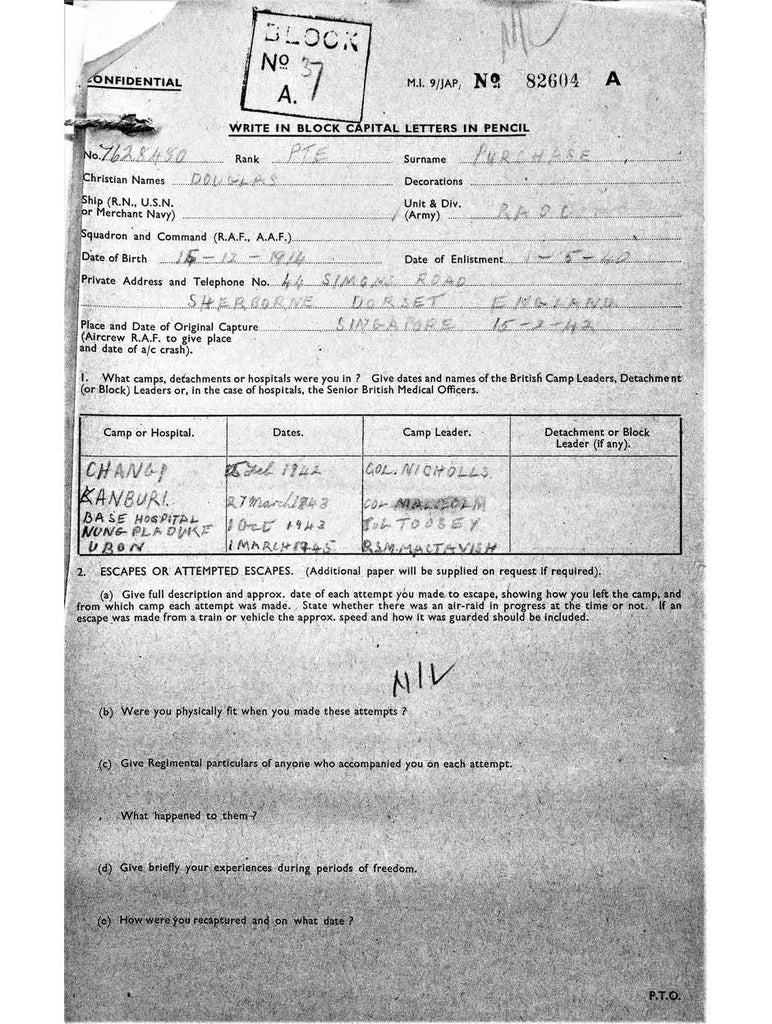 NIL
BLOCK
No 37
A.
CONFIDENTIAL
M.I. 9/JAP, No 82604 A
WRITE IN BLOCK CAPITAL LETTERS IN PENCIL
No. 7628480 Rank PTE Surname PURCHASE
Christian Names DOUGLAS Decorations
Ship (R.N., U.S.N. or Merchant Navy) Unit & Div. (Army) RAOC
Squadron and Command (R.A.F., A.A.F.)
Date of Birth 15-12-1914 Date of Enlistment 1-5-40
Private Address and Telephone No. 44 SIMONS ROAD
SHERBORNE DORSET ENGLAND
Place and Date of Original Capture SINGAPORE 15-2-42
(Aircrew R.A.F. to give place
and date of a/c crash).
1. What camps, detachments or hospitals were you in ? Give dates and names of the British Camp Leaders, Detachment
(or Block) Leaders or, in the case of hospitals, the Senior British Medical Officers.
Camp or Hospital. Dates. Camp Leader. Detachment or Block Leader (if any).
CHANGI 15 Feb 1942 COL. NICHOLLS.
KANBURI. 27 March 1943 COL MALCOLM
BASE HOSPITAL
NUNG PLADUKE 1 Oct 1943 Col TOOSEY
UBON 1 MARCH 1945 RSM. MACTAVISH
2. ESCAPES OR ATTEMPTED ESCAPES. (Additional paper will be supplied on request if required).
(a) Give full description and approx. date of each attempt you made to escape, showing how you left the camp, and
from which camp each attempt was made. State whether there was an air-raid in progress at the time or not. If an
escape was made from a train or vehicle the approx. speed and how it was guarded should be included.
NIL
(b) Were you physically fit when you made these attempts ?
(c) Give Regimental particulars of anyone who accompanied you on each attempt.
What happened to them ?
(d) Give briefly your experiences during periods of freedom.
(e) How were you recaptured and on what date ?
P.T.O.